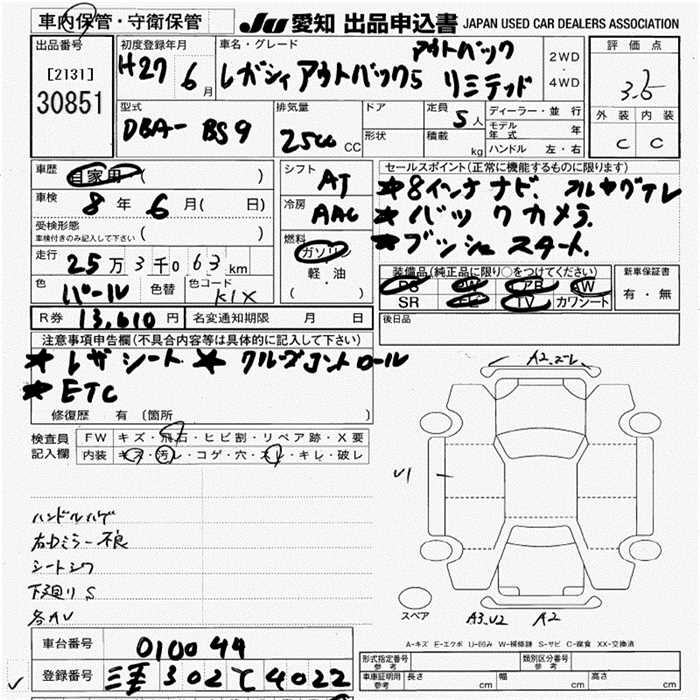 車内保管・守衛保管 JU 愛知 出品申込書 JAPAN USED CAR DEALERS ASSOCIATION
出品番号 [2131] 30851
初度登録年月 H27 6月
車名・グレード アウトバック レガシィ アウトバック5 リミテッド
2WD ・ 4WD
評価点 3.5
外装 内装
C C
型式 DBA-BS9
排気量 2500 CC
ドア 形状
定員 5人 積載 kg
ディーラー・並行
モデル年式 年
ハンドル 左・右
車歴 自家用 ( )
車検 8年 6月( 日)
受検形態 車検付きのみ記入して下さい ( )
走行 25万3千063km
色 パール 色替 色コード K1X
R券 13,610円 名変通知期限 月 日
シフト AT
冷房 AAC
燃料 ガソリン 軽・油 ( )
セールスポイント(正常に機能するものに限ります)
★8インチナビ.
★バックカメラ.
★プッシュスタート.
装備品(純正品に限り○をつけてください)
PS PW AB AW
SR TV カワシート
新車保証書 有・無
後日品
注意事項申告欄(不具合内容等は具体的に記入して下さい)
★レザシート ★クルーズコントロール
★ETC
修復歴 有(箇所 )
検査員記入欄
FW キズ・飛石・ヒビ割・リペア跡・X要
内装 キズ・汚レ・コゲ・穴・スレ・キレ・破レ
ハンドルハゲ
右ミラー不良
シートシワ
下廻りS
各AU
U1
スペア
A3.U2 A2
A-キズ E-エクボ U-凹み W-補修跡 S-サビ C-腐食 XX-交換済
車台番号 010044
登録番号 三重302て4022
形式指定番号 参考 類別区分番号 参考
車庫証明用 参考 長さ cm 幅 cm 高さ cm